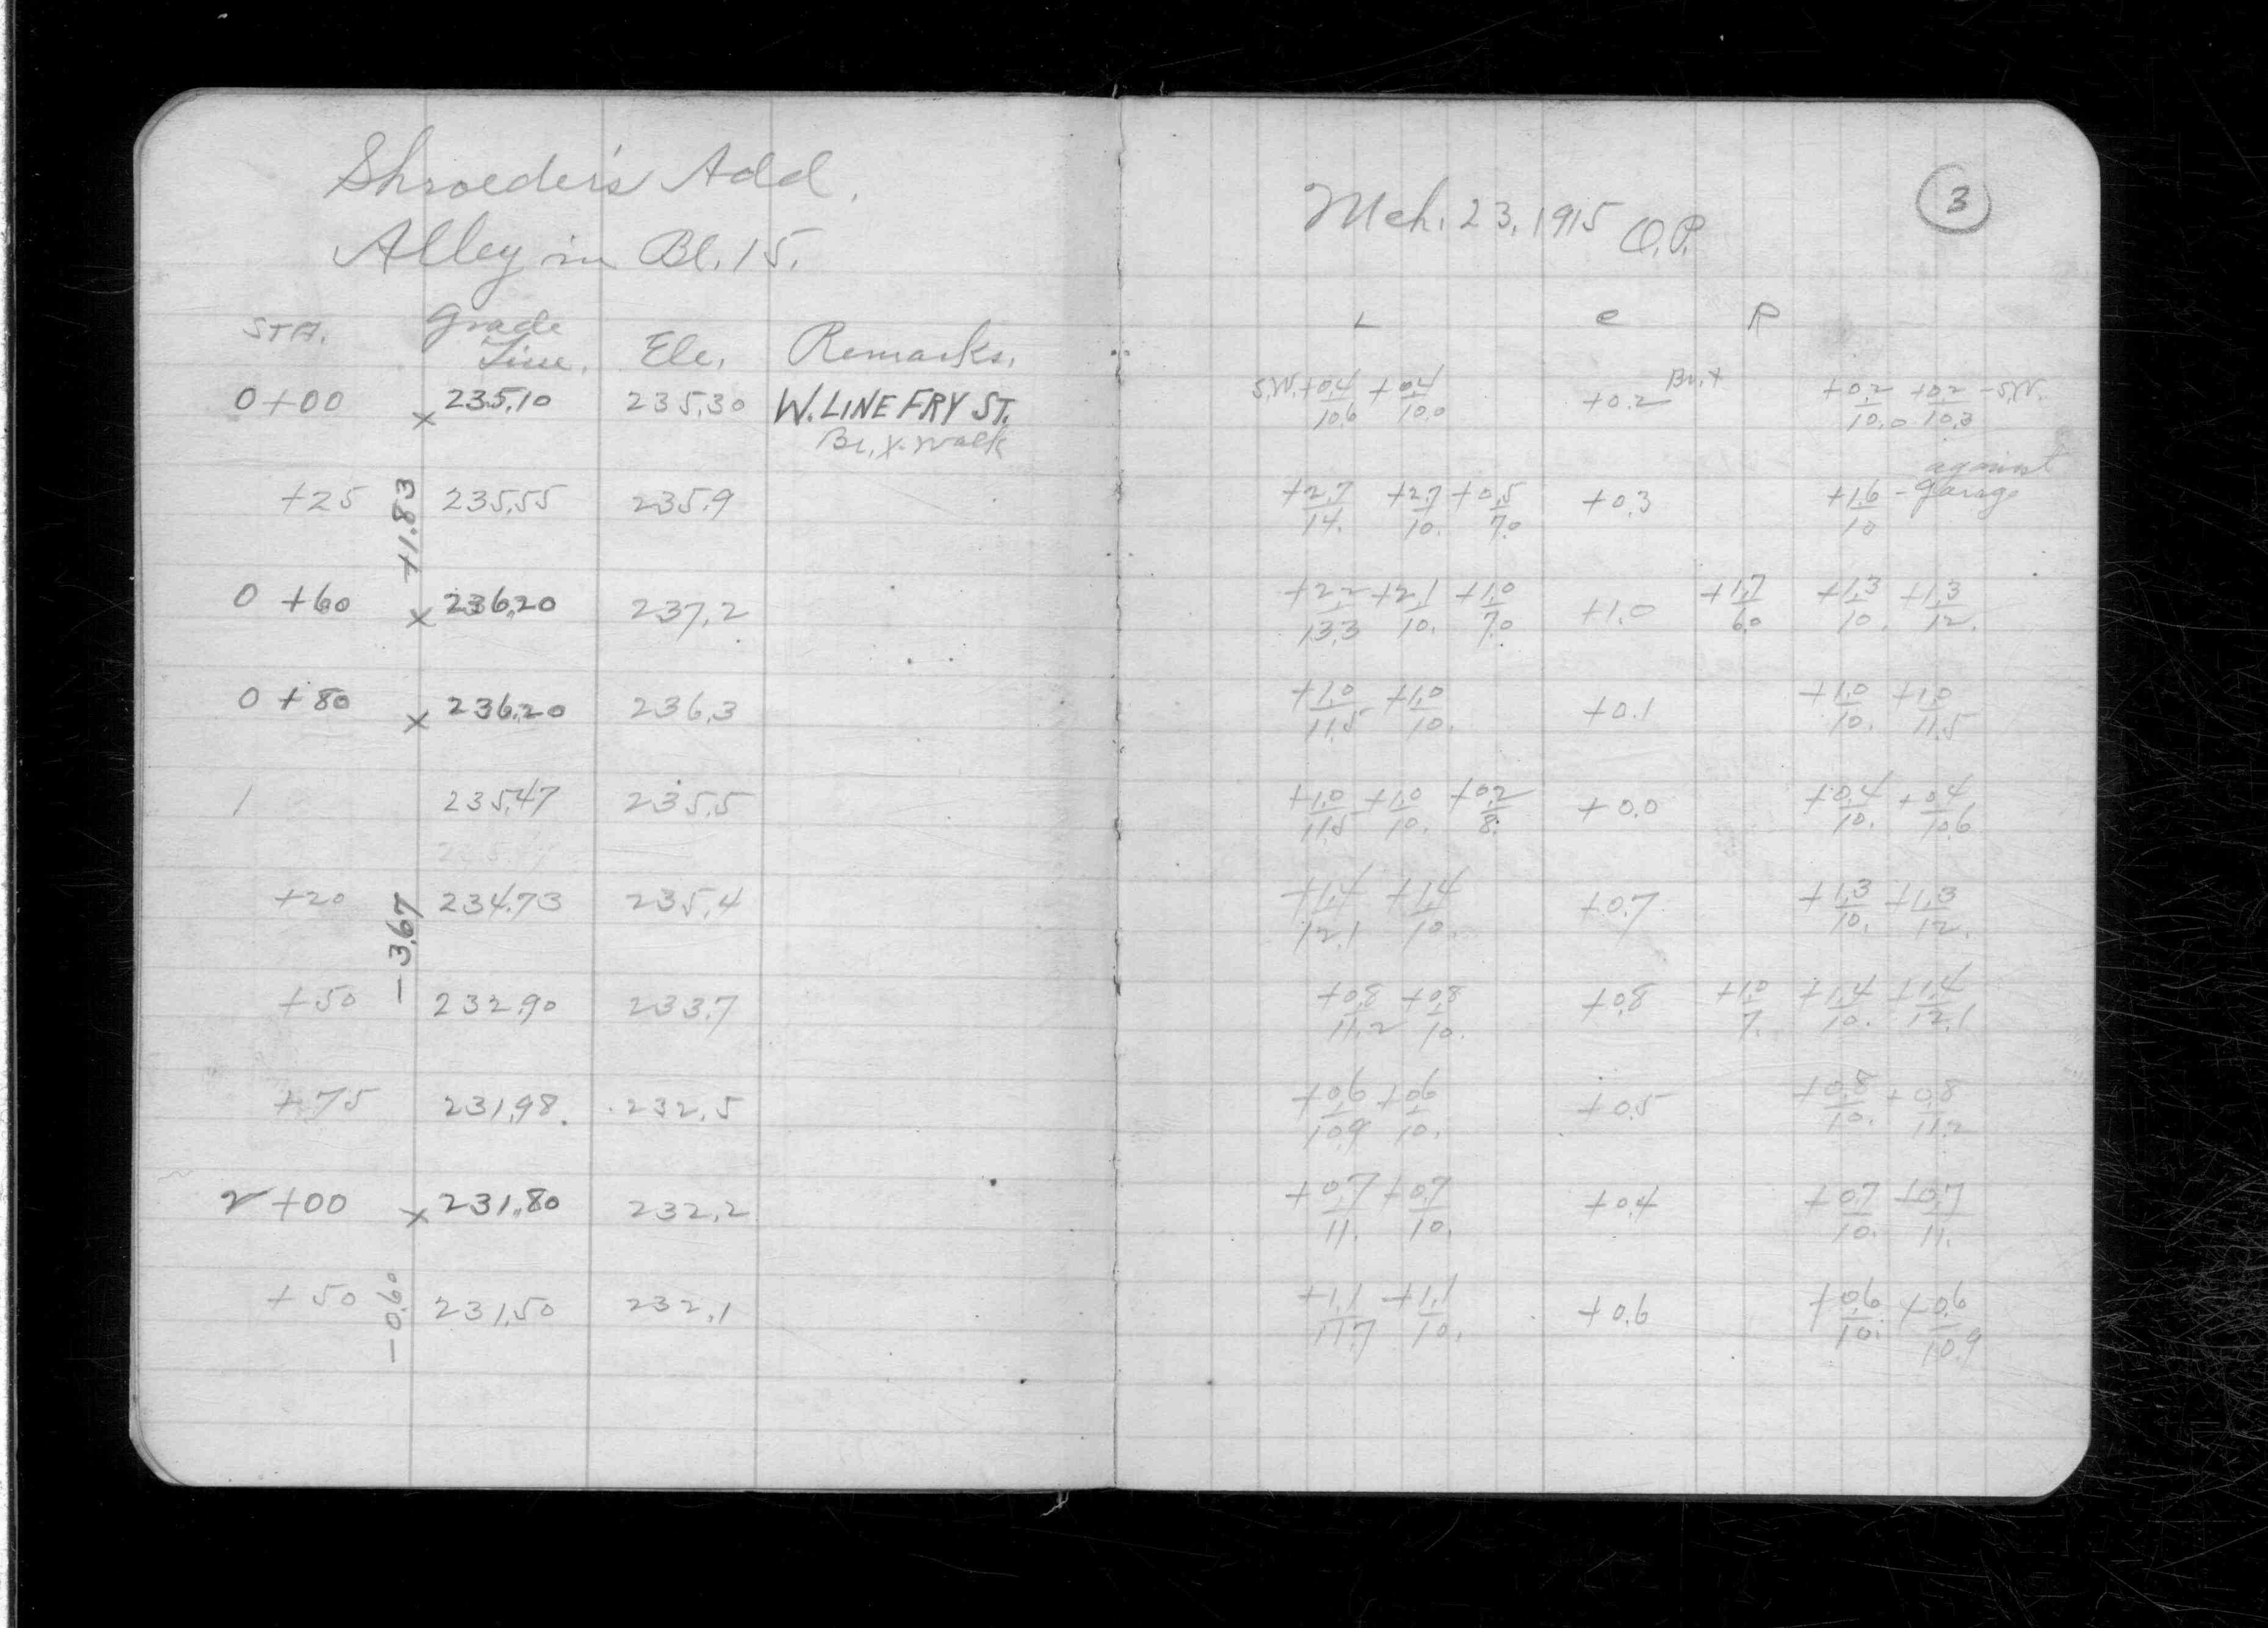 Shroeder's Add.
Alley in Bl. 15.
STA. Grade Line. Ele. Remarks.
0+00 x 235.10 235.30 W. LINE FRY ST.
Br. X. Walk
+25 235.55 235.9
+1.83
0 +60 x 236.20 237.2
0 +80 x 236.20 236.3
1 235.47 235.5
+20 234.73 235.4
-3.67
+50 232.90 233.7
+75 231.98. 232.5
2 +00 x 231.80 232.2
+50 231.50 232.1
-0.60
Mch. 23. 1915 O.P. 3
L C R
S.W. +0.4/10.6 +0.4/10.0 +0.2 Br. X +0.2/10.0 +0.2/10.3 - S.W.
+2.7/14. +2.7/10. +0.5/7.0 +0.3 +1.6/10 - against garage
+2.2/13.3 +2.1/10. +1.0/7.0 +1.0 +1.7/6.0 +1.3/10. +1.3/12.
+1.0/11.5 +1.0/10. +0.1 +1.0/10. +1.0/11.5
+1.0/11.5 +1.0/10. +0.2/8. +0.0 +0.4/10. +0.4/10.6
+1.4/12.1 +1.4/10. +0.7 +1.3/10. +1.3/12.
+0.8/11.2 +0.8/10. +0.8 +1.0/7. +1.4/10. +1.4/12.1
+0.6/10.9 +0.6/10. +0.5 +0.8/10. +0.8/11.2
+0.7/11. +0.7/10. +0.4 +0.7/10. +0.7/11.
+1.1/11.7 +1.1/10. +0.6 +0.6/10. +0.6/10.9